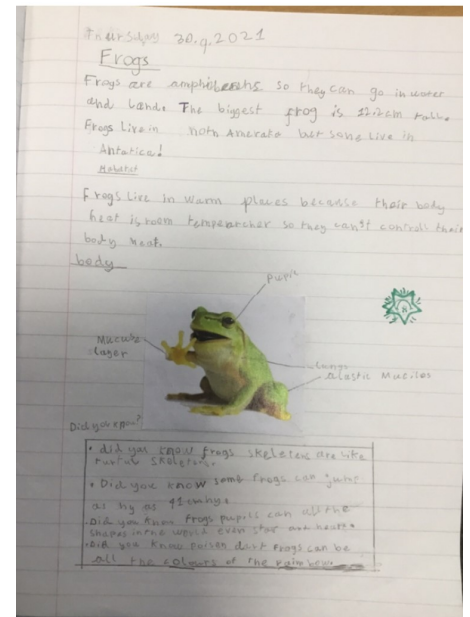 Thursday 30.9.2021
Frogs
Frogs are so they can go in water
and Lande The biggest frog is
Frogs Live in noth Amerake but some Live in
Antatica!
Habatat
Frogs Live in warm places becasse their body
heat is room tempearcher so they can't controls their
body heat
body
Pupil
Mucuse
layer
Lungs
alastic Muciles
Did you know?
• did you know frogs skeletens are like
skeletens.
• Did you know some frogs can jump
as hy as
• Did you know frogs pupils can all the
shapes in the world even star and
• Did you know poison dart frogs can be
all the colours of the rainbow.